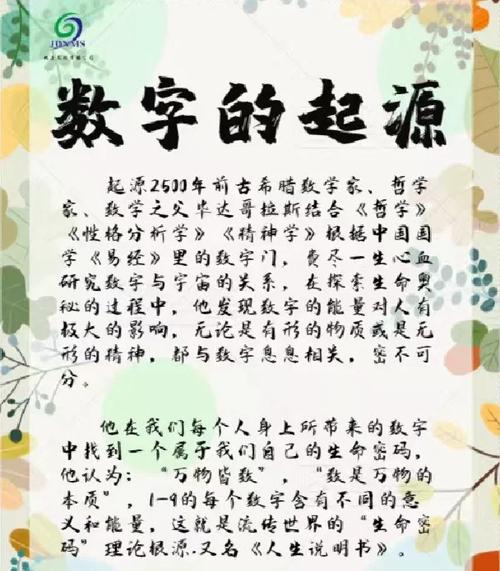 JDNMS
数字的起源
起源2500年前古希腊数学家、哲学
家、数学之父毕达哥拉斯结合《哲学》
《性格分析学》《精神学》根据中国国
学《易经》里的数字门，费尽一生心血
研究数字与宇宙的关系，在探索生命奥
秘的过程中，他发现数字的能量对人有
极大的影响，无论是有形的物质或是无
形的精神，都与数字息息相关，密不可
分。
他在我们每个人身上所带来的数字
中找到一个属于我们自己的生命密码，
他认为：“万物皆数”，“数是万物的
本质”，1-9的每个数字含有不同的意
义和能量，这就是流传世界的“生命密
码”理论根源.又名《人生说明书》。